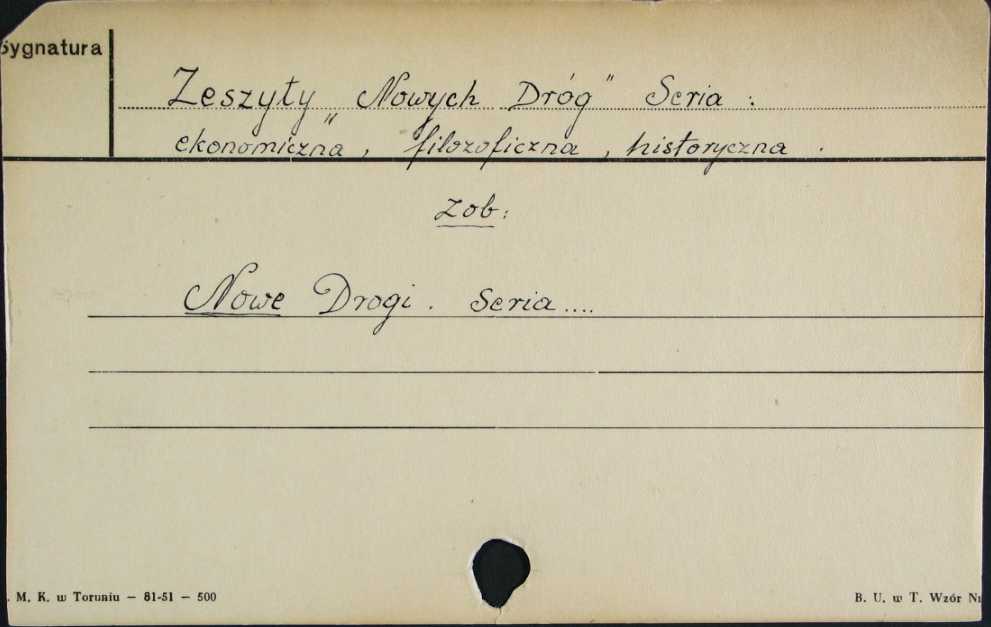 Sygnatura
Zeszyty „Nowych Dróg" Seria :
ekonomiczna, filozoficzna, historyczna.
Zob:
Nowe Drogi. Seria ....
. M. K. w Toruniu — 81-51 — 500
B. U. w T. Wzór Nr